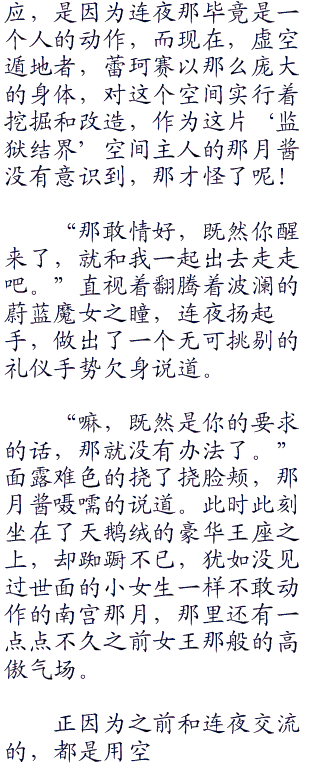 应，是因为连夜那毕竟是一
个人的动作，而现在，虚空
遁地者，蕾珂赛以那么庞大
的身体，对这个空间实行着
挖掘和改造，作为这片‘监
狱结界’空间主人的那月酱
没有意识到，那才怪了呢！
“那敢情好，既然你醒
来了，就和我一起出去走走
吧。”直视着翻腾着波澜的
蔚蓝魔女之瞳，连夜扬起
手，做出了一个无可挑剔的
礼仪手势欠身说道。
“嘛，既然是你的要求
的话，那就没有办法了。”
面露难色的挠了挠脸颊，那
月酱嗫嚅的说道。此时此刻
坐在了天鹅绒的豪华王座之
上，却踟蹰不已，犹如没见
过世面的小女生一样不敢动
作的南宫那月，那里还有一
点点不久之前女王那般的高
傲气场。
正因为之前和连夜交流
的，都是用空